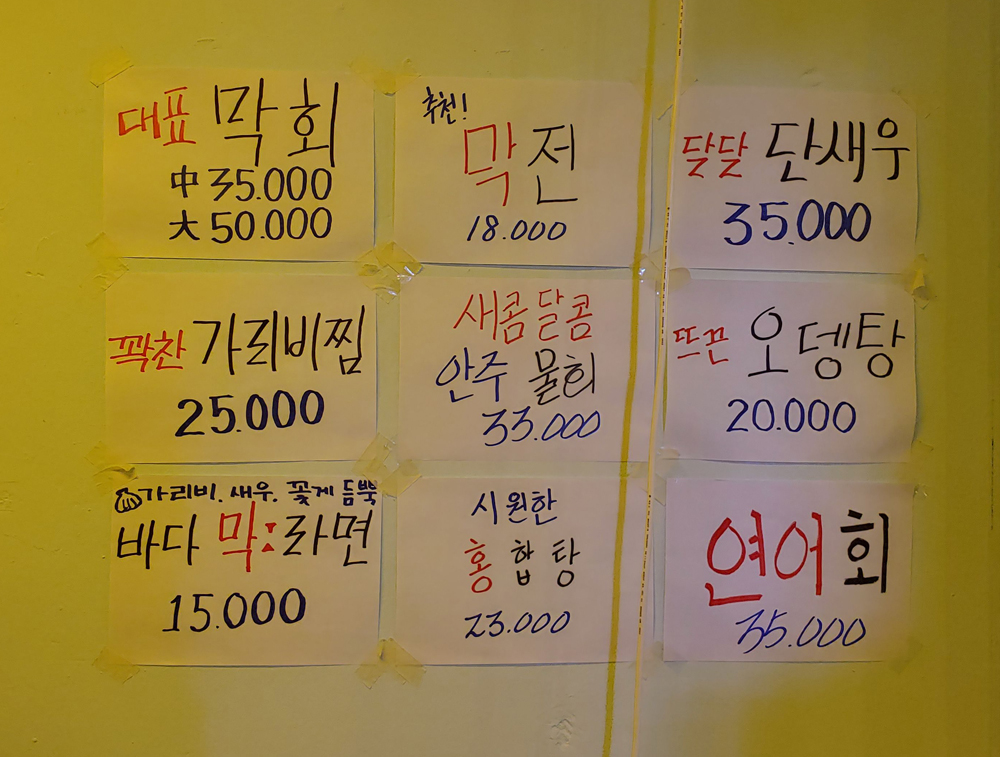 대표 막회
中 35.000
大 50.000
추천!
막전
18.000
달달 단새우
35.000
꽉찬 가리비찜
25.000
새콤달콤
안주 물회
33.000
뜨끈 오뎅탕
20.000
가리비. 새우. 꽃게 듬뿍
바다 막:라면
15.000
시원한
홍합탕
23.000
연어회
35.000